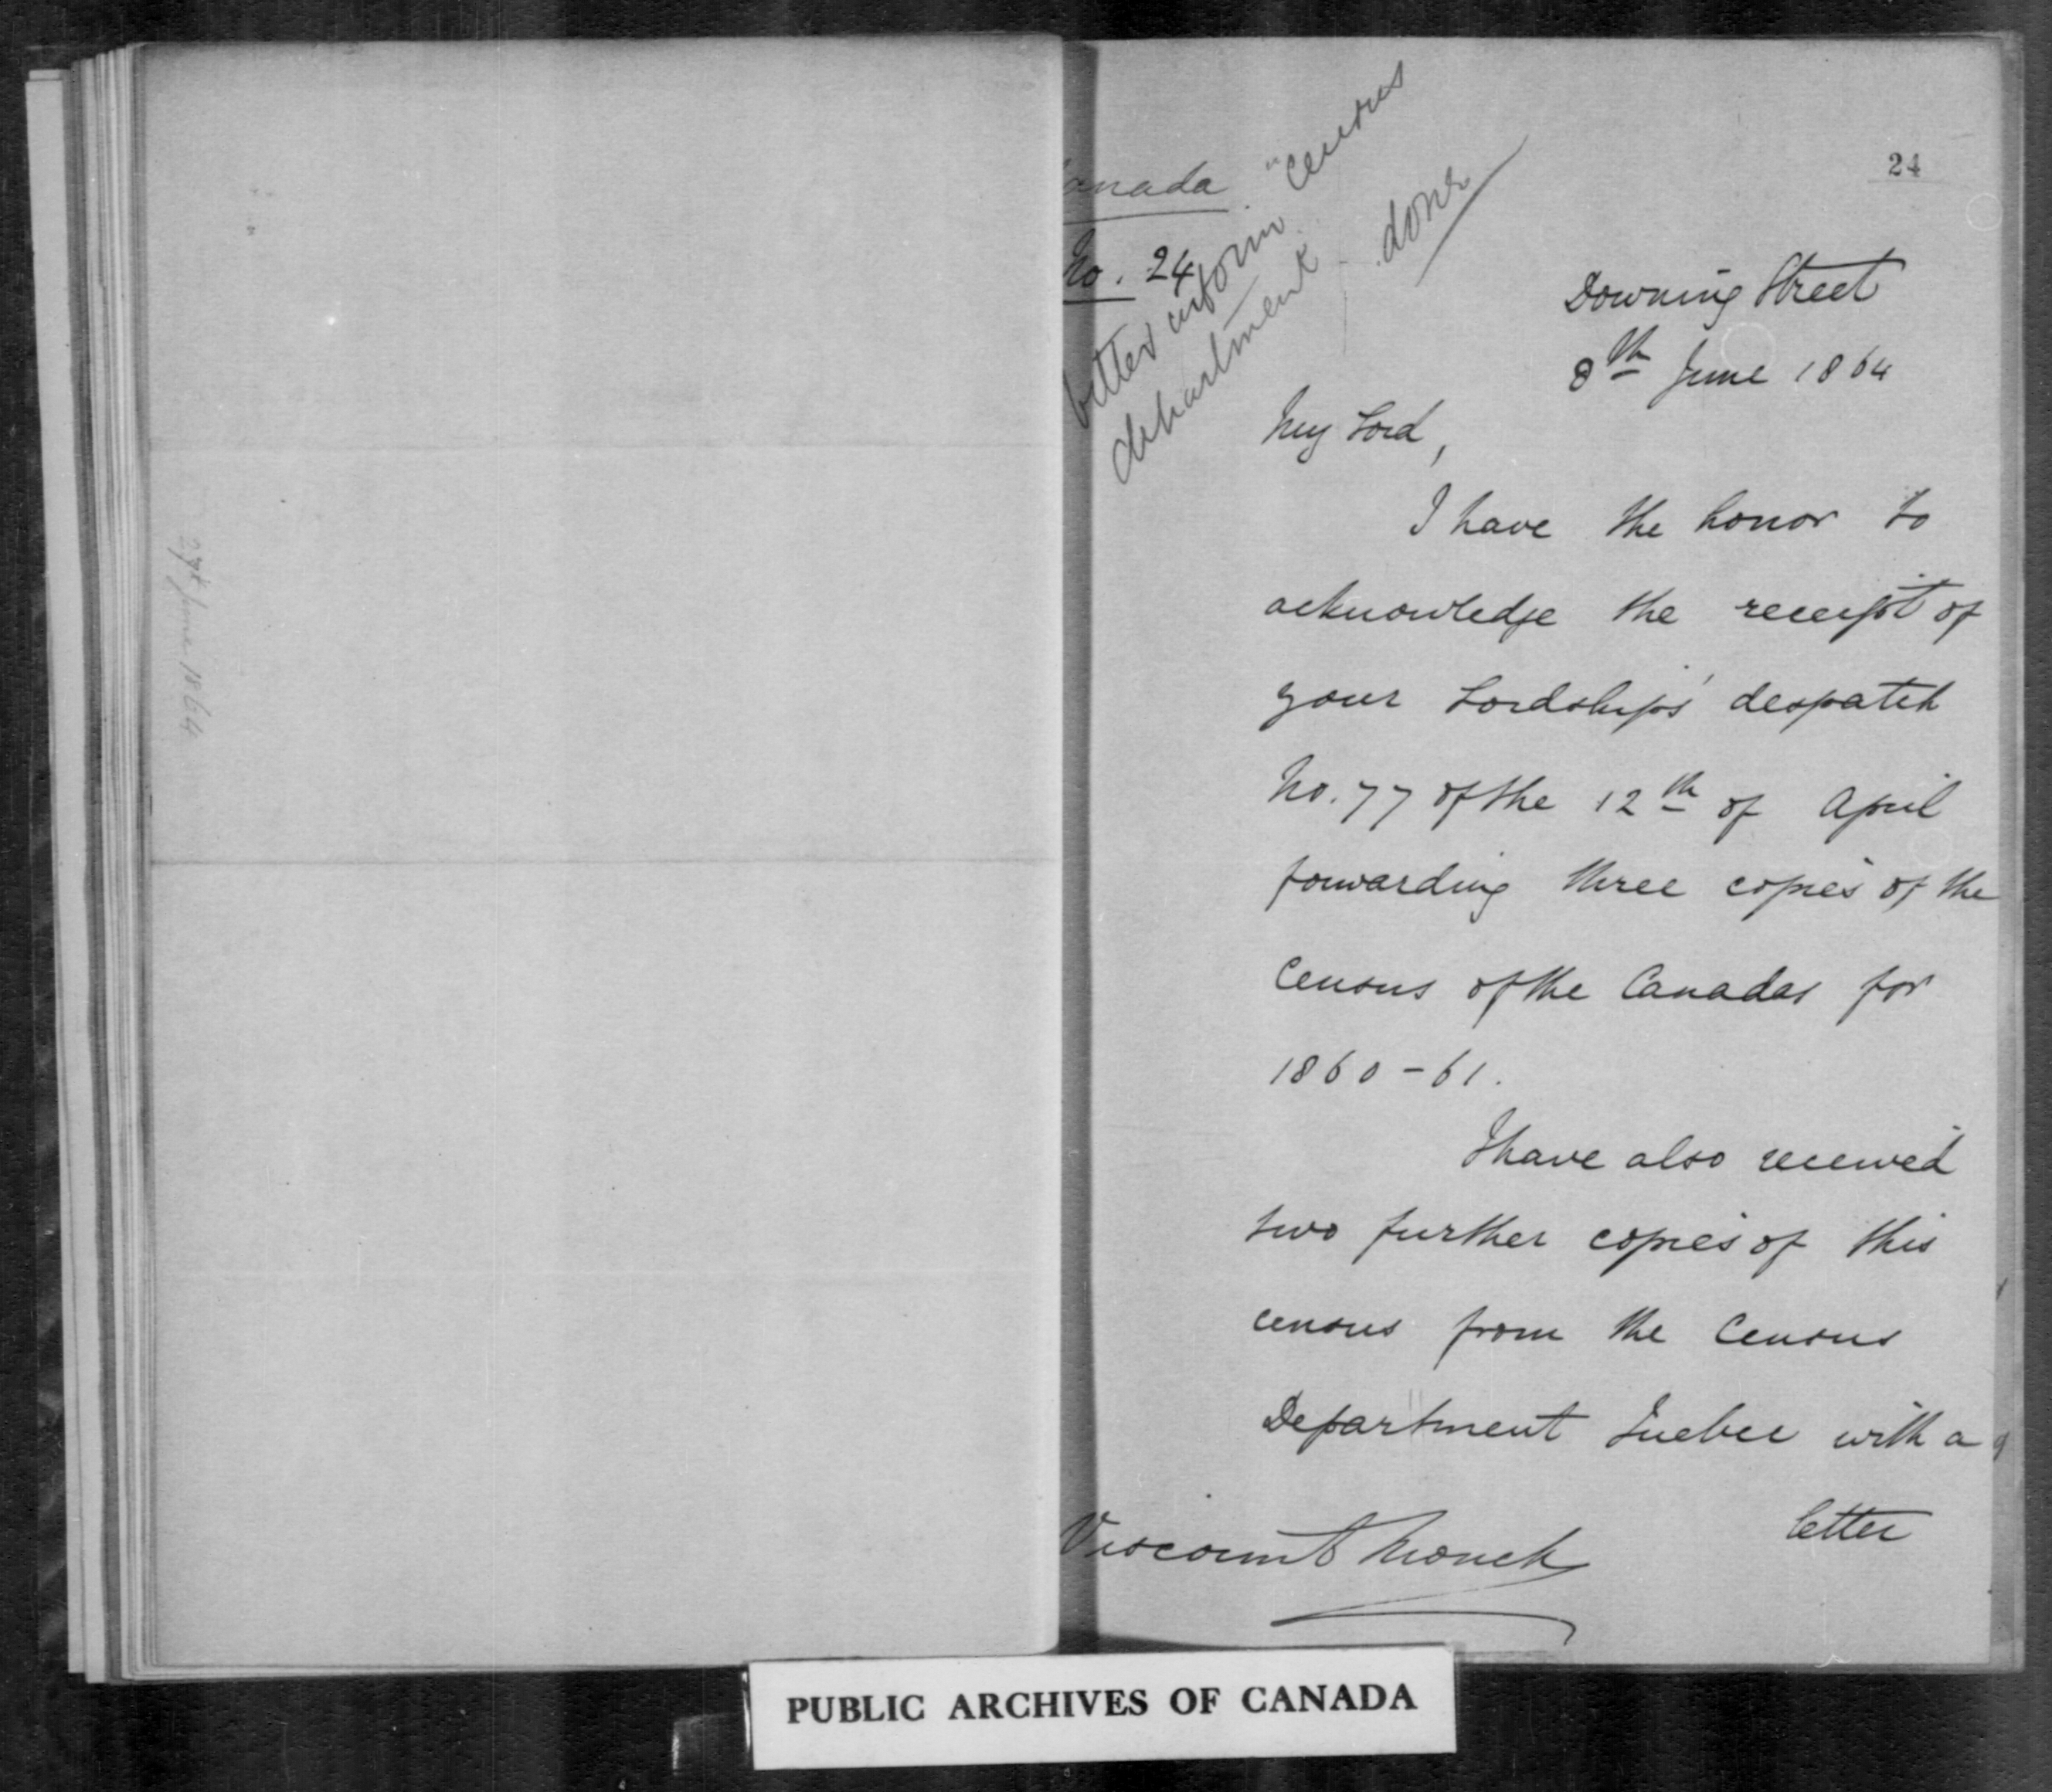 24
Canada
No. 24
better inform "census
department - done
Downing Street
8th June 1864
My Lord,
I have the honor to
acknowledge the receipt of
your Lordship's despatch
No. 77 of the 12th of April
forwarding three copies of the
Census of the Canadas for
1860-61.
I have also received
two further copies of this
census from the Census
Department Quebec with a
letter
Viscount Monck
June 1864
PUBLIC ARCHIVES OF CANADA